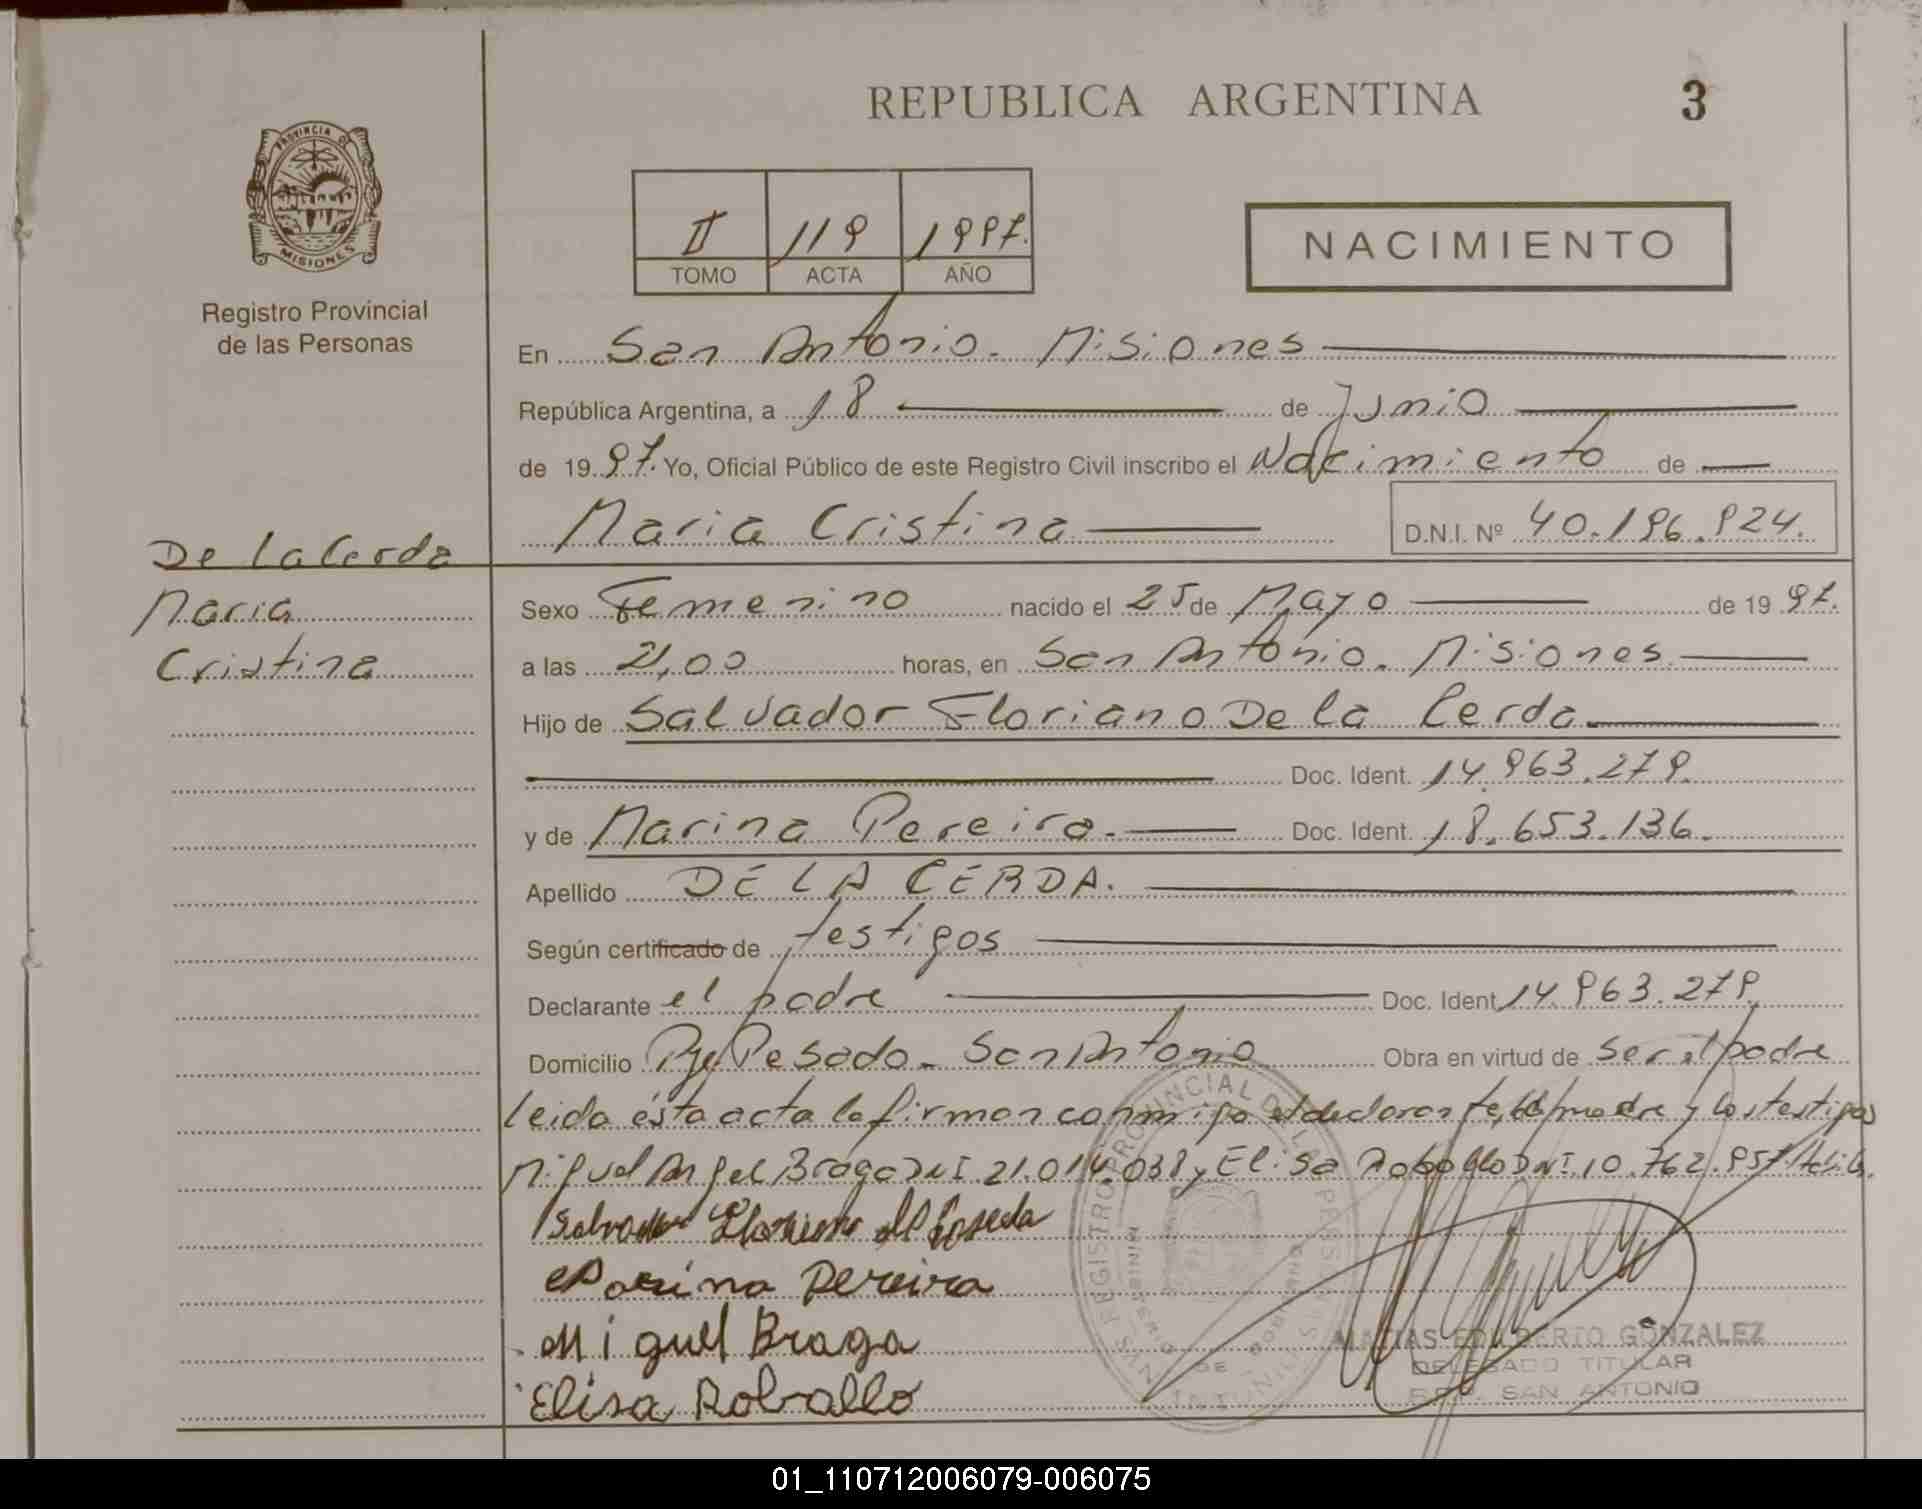 REPUBLICA ARGENTINA
3
PROVINCIA DE
MISIONES
Registro Provincial
de las Personas
II 119 1997.
TOMO ACTA AÑO
NACIMIENTO
En San Antonio. Misiones
República Argentina, a 18 de Junio
de 19 97. Yo, Oficial Público de este Registro Civil inscribo el Nacimiento de
Maria Cristina D.N.I. Nº 40.196.924.
De la Cerda
Maria
Cristina
Sexo Femenino nacido el 25 de Mayo de 19 97.
a las 21,00 horas, en San Antonio. Misiones
Hijo de Salvador Floriano De la Cerda
Doc. Ident. 14.963.279.
y de Marina Pereira. Doc. Ident. 18.653.136.
Apellido DE LA CERDA.
Según certificado de testigos
Declarante el padre Doc. Ident. 14.963.279.
Domicilio Pje Pesado - San Antonio Obra en virtud de ser el padre
leida ésta acta la firman conmigo el declarante, la madre y los testigos
Miguel Angel Braga DNI. 21.014.038 y Elisa Roballo DNI. 10.762.957
Salvador Floriano
Marina Pereira
Miguel Braga
Elisa Roballo
REGISTRO PROVINCIAL DE LAS PERSONAS
MINISTERIO DE GOBIERNO
SAN ANTONIO
MATIAS EDILBERTO GONZALEZ
DELEGADO TITULAR
R.P.P. SAN ANTONIO
01_110712006079-006075